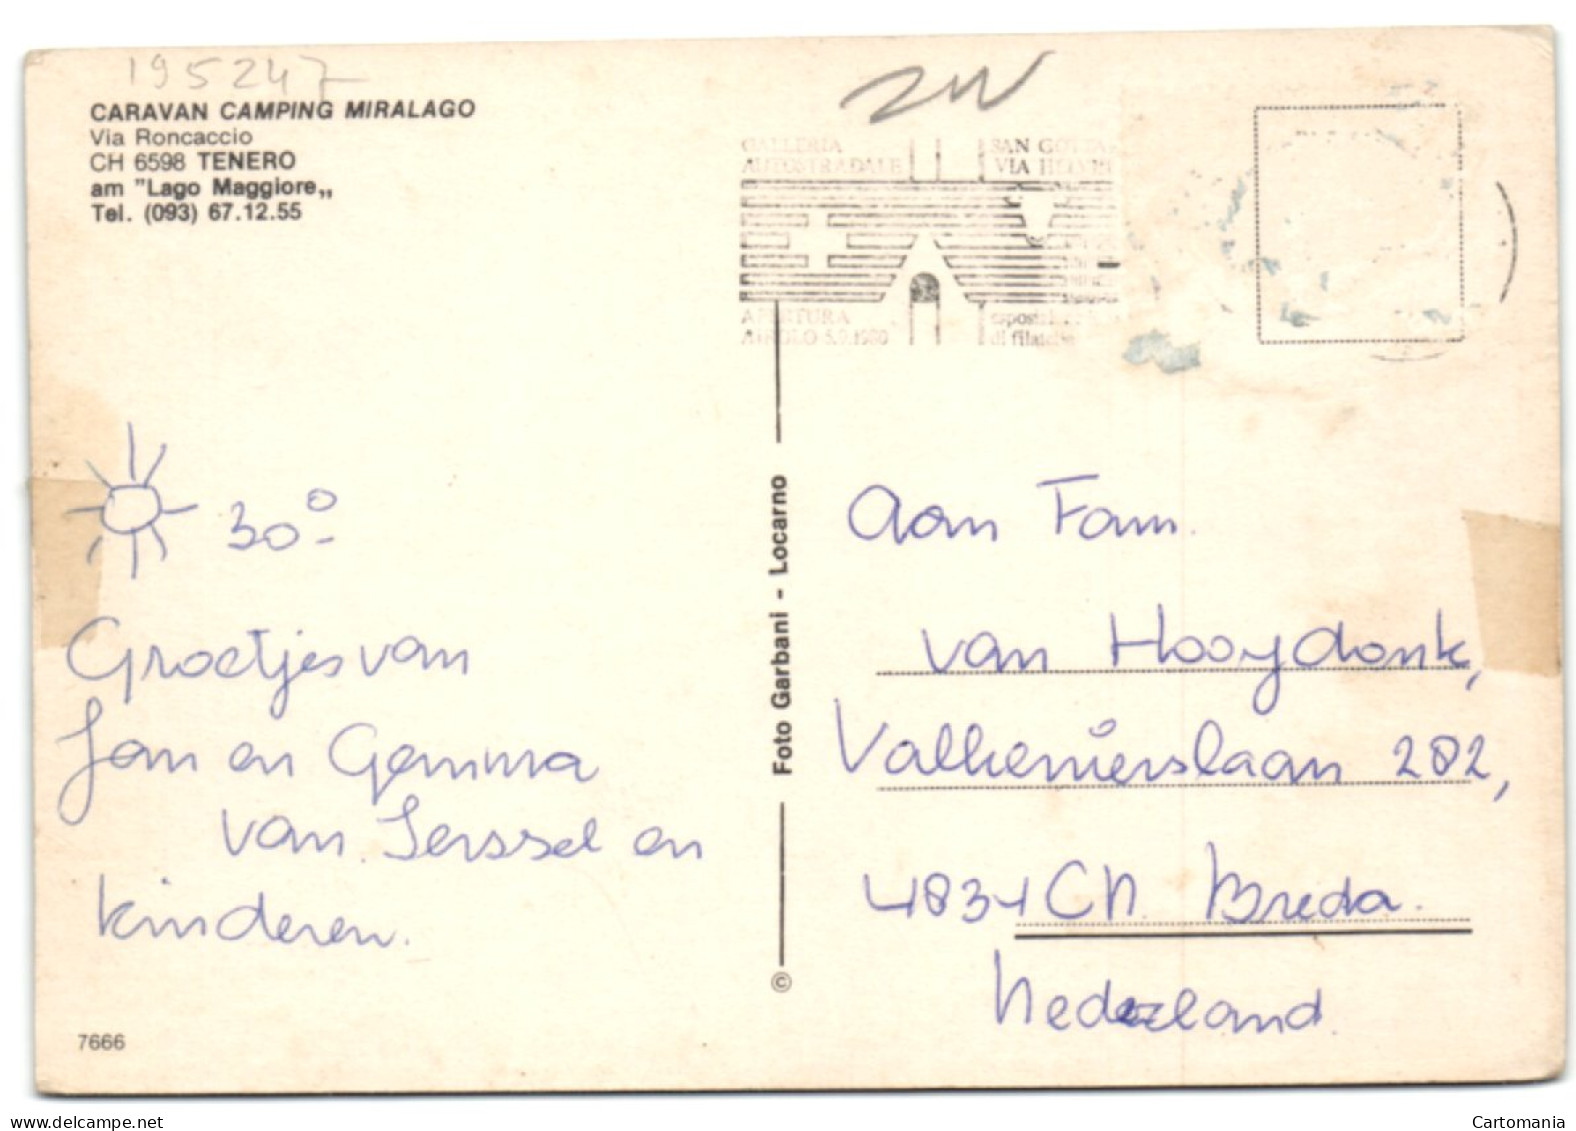 195247
CARAVAN CAMPING MIRALAGO
Via Roncaccio
CH 6598 TENERO
am "Lago Maggiore„
Tel. (093) 67.12.55
GALLERIA
AUTOSTRADALE
SAN GOTTA
VIA
APERTURA
AIROLO 5.9.1980
di
30°-
Groetjes van
Jan en Gemma
van Ierssel en
kinderen.
7666
Foto Garbani - Locarno
©
Aan Fam.
van Hooydonk,
Valkenierslaan 282,
4834 CN Breda.
Nederland.
www.delcampe.net
Cartomania